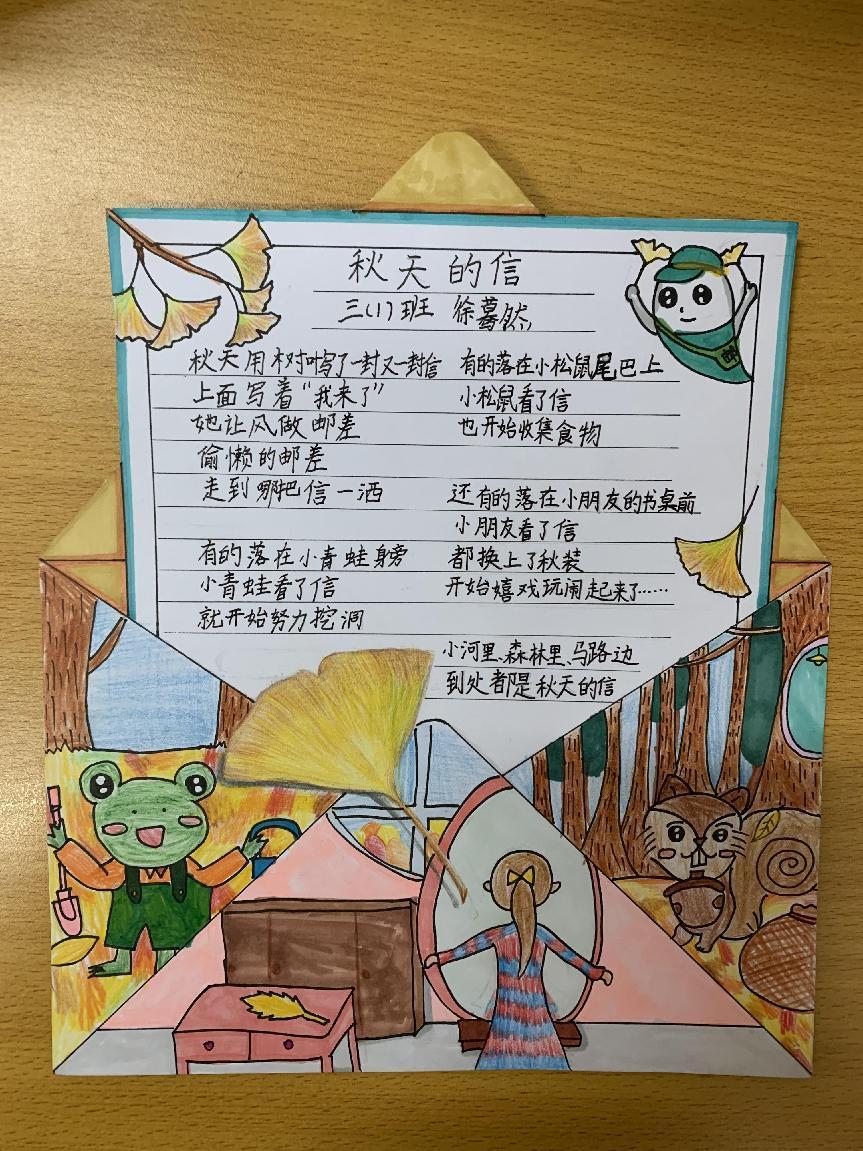 秋天的信
三(1)班 徐蓦然
秋天用树叶写了一封又一封信
上面写着“我来了”
她让风做邮差
偷懒的邮差
走到哪把信一洒
有的落在小青蛙身旁
小青蛙看了信
就开始努力挖洞
有的落在小松鼠尾巴上
小松鼠看了信
也开始收集食物
还有的落在小朋友的书桌前
小朋友看了信
都换上了秋装
开始嬉戏玩闹起来了……
小河里、森林里、马路边
到处都是秋天的信
邮